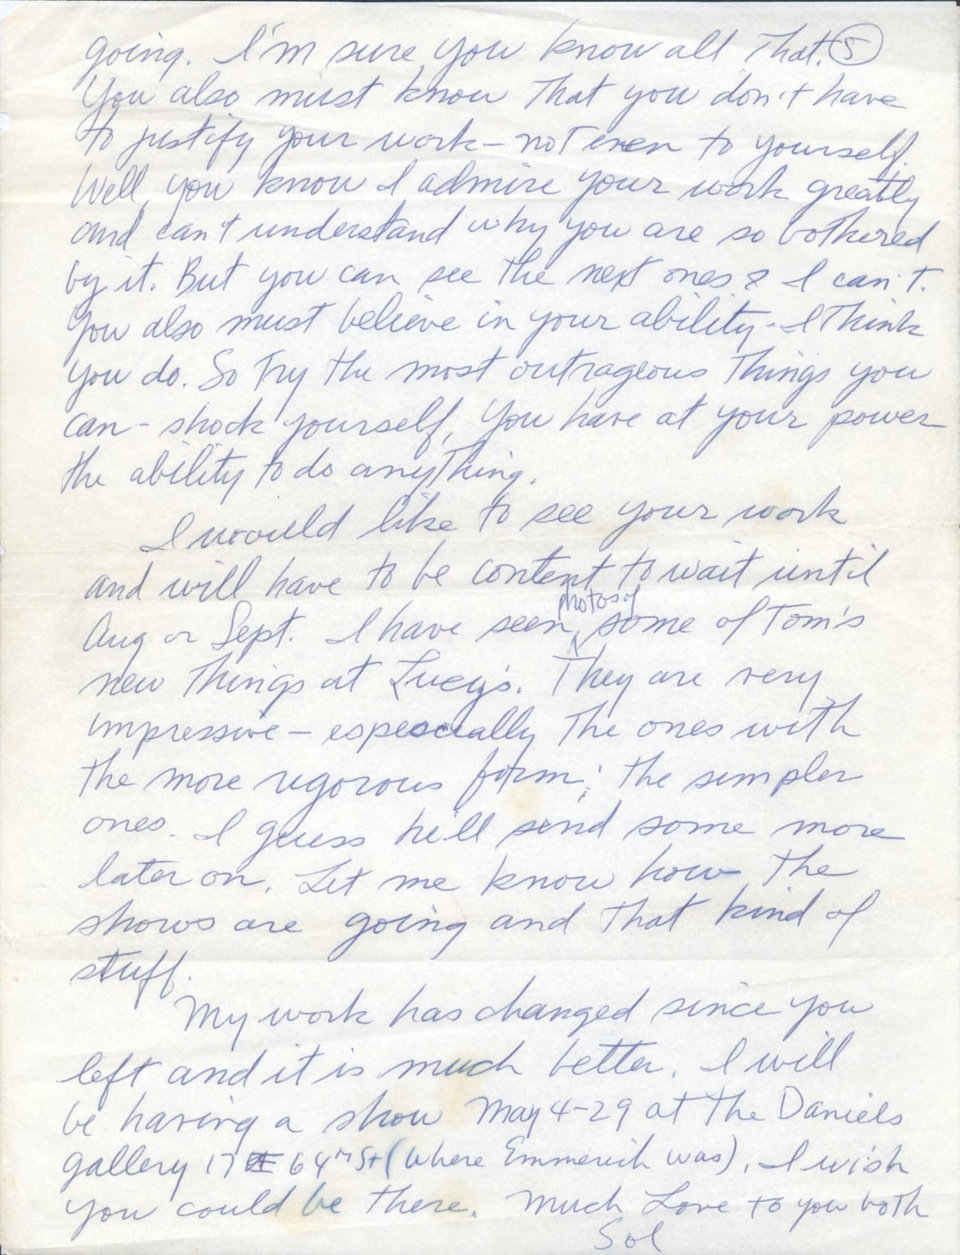 going. I'm sure you know all that. 5
You also must know that you don't have
to justify your work – not even to yourself.
Well, you know I admire your work greatly
and can't understand why you are so bothered
by it. But you can see the next ones & I can't.
You also must believe in your ability - I think
you do. So try the most outrageous things you
can - shock yourself. You have at your power
the ability to do anything.
I would like to see your work
and will have to be content to wait until
Aug or Sept. I have seen photos of some of Tom's
new things at Lucy's. They are very
impressive – especially the ones with
the more rigorous form; the simpler
ones. I guess he'll send some more
later on. Let me know how the
shows are going and that kind of
stuff.
My work has changed since you
left and it is much better. I will
be having a show May 4-29 at the Daniels
gallery 17 E 64th St (where Emmerich was). I wish
you could be there. Much Love to you both
Sol